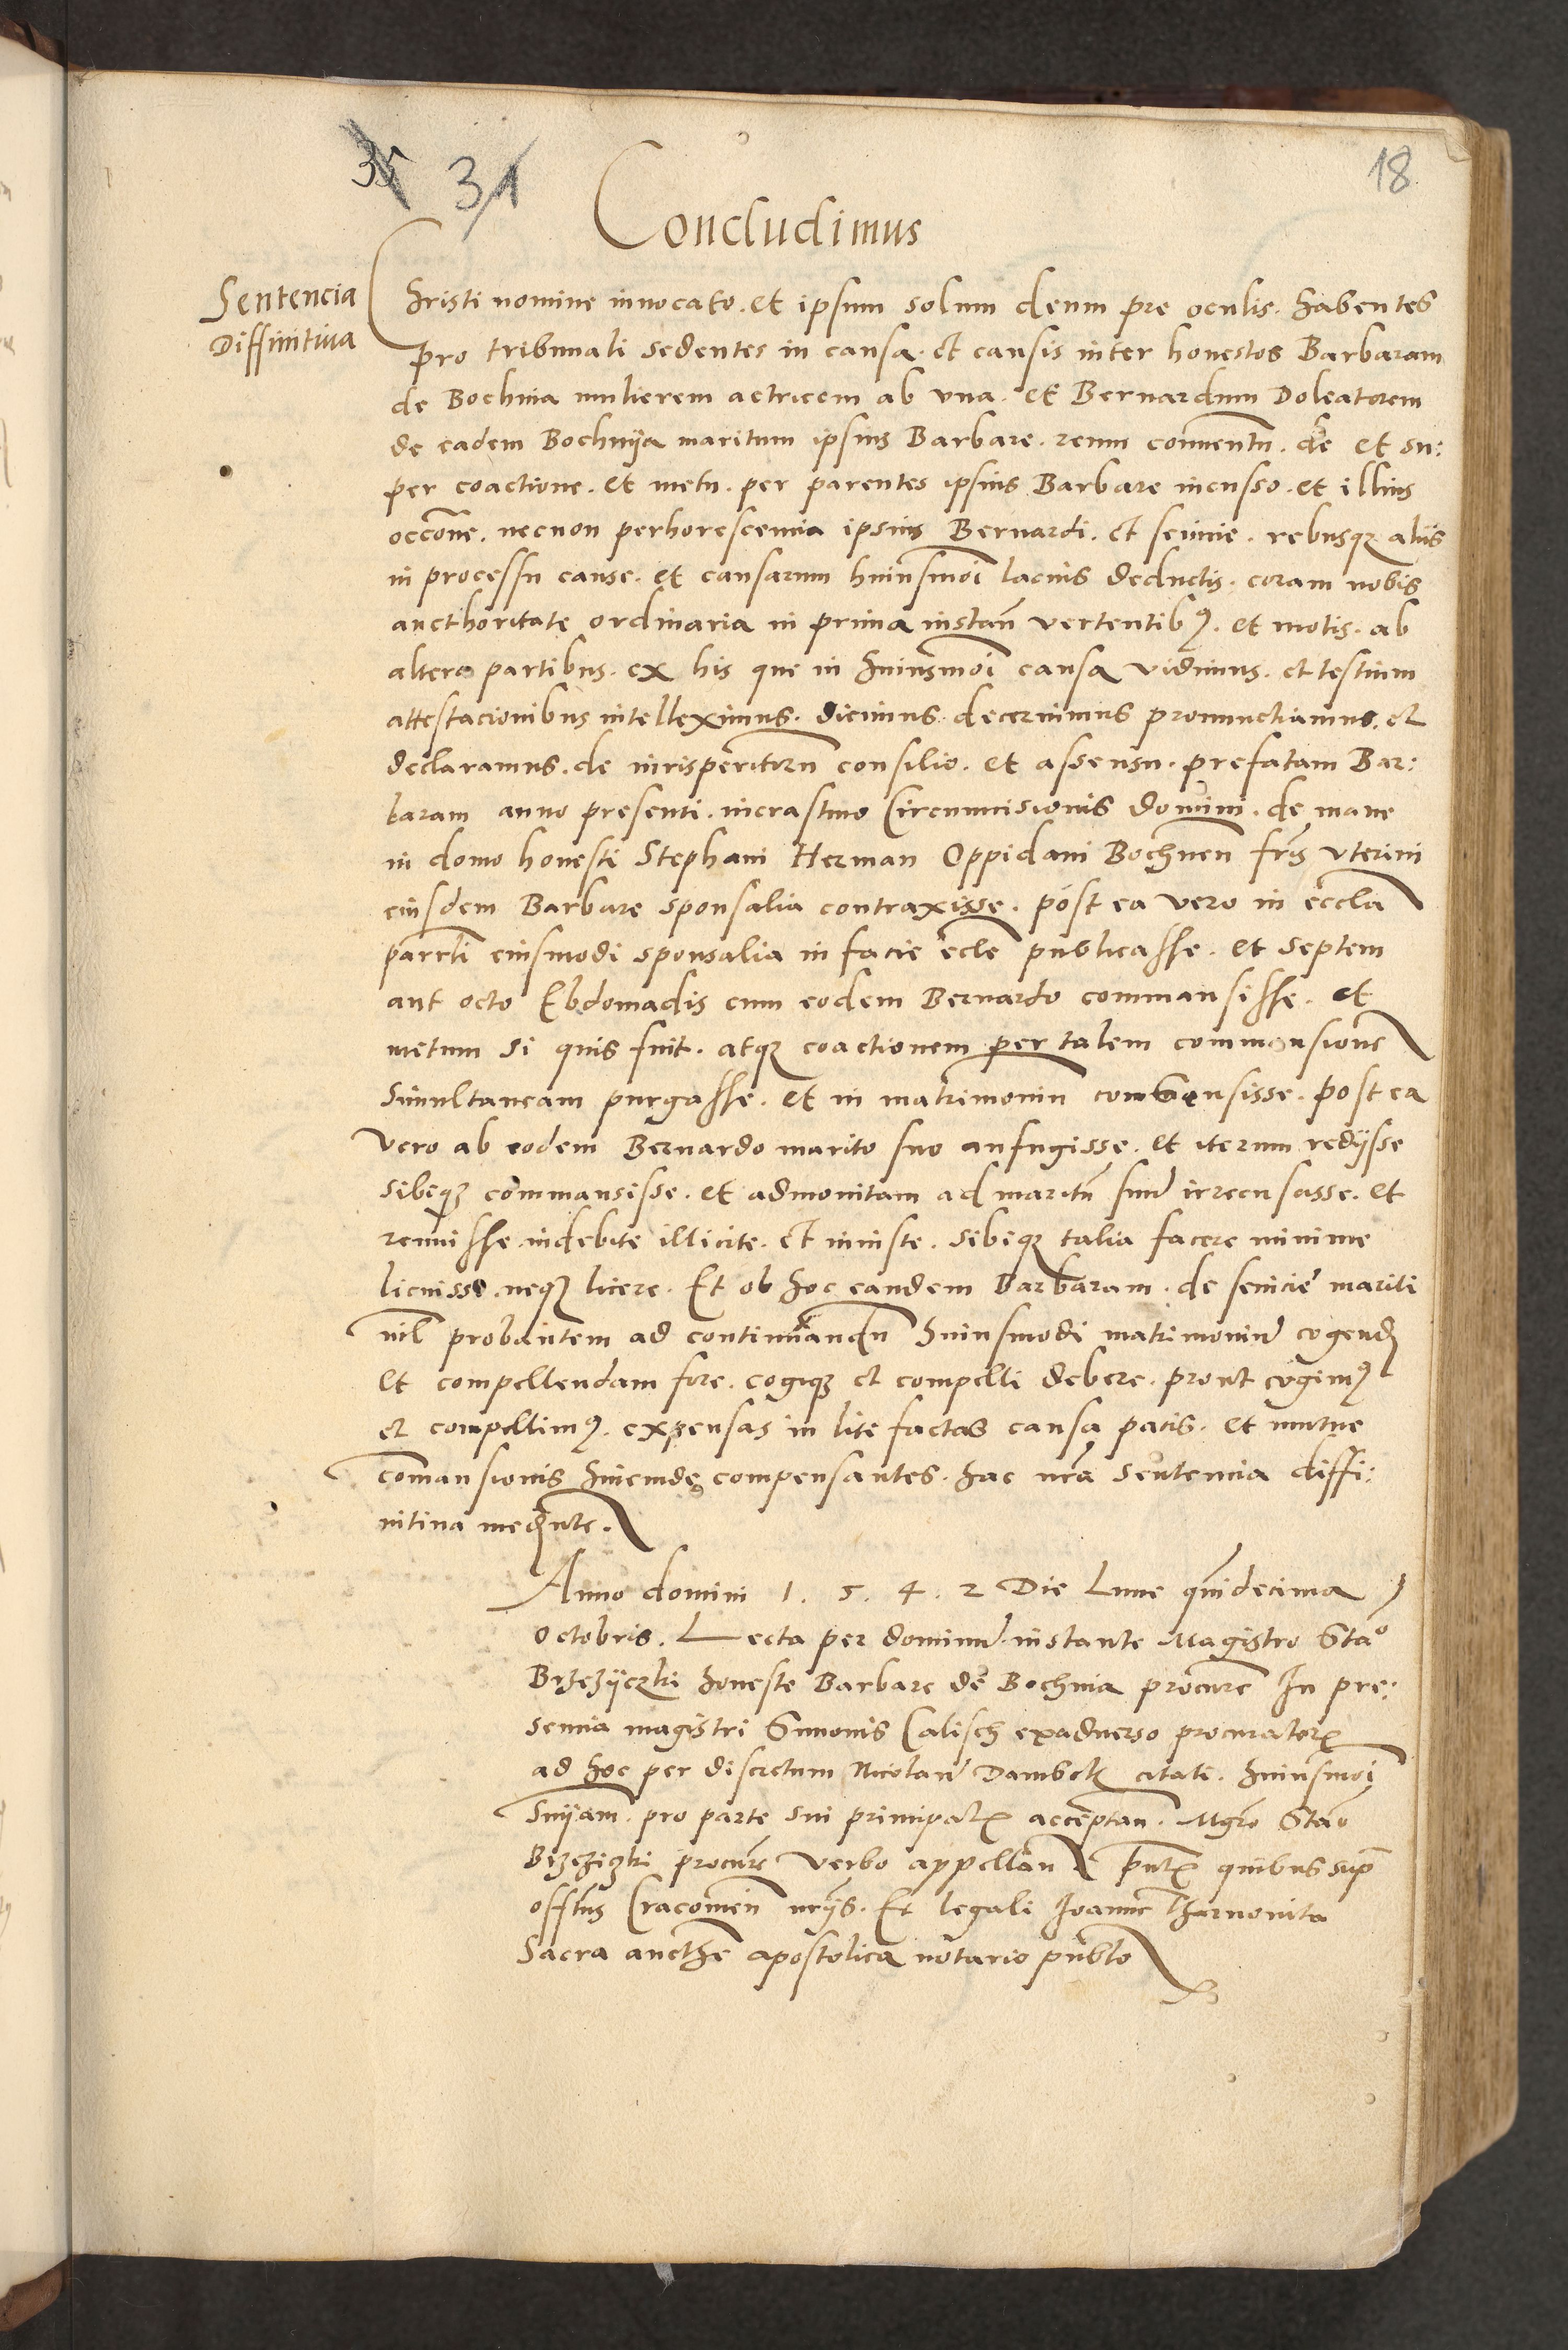 35 31
18
Concludimus
Sentencia
Diffinitiua
Christi nomine inuocato. et ipsum solum deum pre oculis. habentes
pro tribunali sedentes in causa. et causis inter honestos Barbaram
de Bochnia mulierem actricem ab vna. et Bernardum Doleatorem
de eadem Bochnija maritum ipsius Barbare. reum conuentu. de et su:
per coactione. et metu. per parentes ipsius Barbare incusso. et illius
occone. necnon perhorescencia ipsius Bernardi. et seuicie. rebusqz alijs
in processu cause. et causarum huiusmoi lacius deductis. coram nobis
aucthoritate ordinaria in prima instan vertentibꝰ. et motis. ab
altero partibus. ex his que in huiusmoi causa vidimus. et testium
attestacionibus intelleximus. dicimus decernimus pronunctiamus. et
declaramus. de iurisperitoru consilio. et assensu. prefatam Bar:
baram anno presenti. incrastino Circumcisionis domini. de mane
in domo honesti Stephani Herman Oppidani Bochnen fris vterini
eiusdem Barbare sponsalia contraxisse. post ea vero in eccla
parrli eiusmodi sponsalia in facie ecle publicasse. et septem
aut octo Ebdomadis cum eodem Bernardo commansisse. et
metum si quis fuit. atqz coactionem per talem commansione
simultaneam purgasse. et in matrimoniu consensisse. post ea
vero ab eodem Bernardo marito suo aufugisse. et iterum redijsse
sibiqz commansisse. et admonitam ad maritu suu irrecusasse. et
renuisse indebite illicite. et iniuste. sibiqz talia facere minime
licuisse. neqz licere. Et ob hoc eandem Barbaram. de seuicie mariti
nil probantem ad continuandu huiusmodi matrimoniu cogend
et compellendam fore. cogiqz et compelli debere. prout cogimꝰ
et compellimꝰ. expensas in lite factas causa pacis. et mutue
comansionis huiemde compensantes. hac nra sentencia diffi:
nitiua mediante.
Anno domini 1. 5. 4. 2 Die Lune quindecima
Octobris. Lecta per dominu instante Magistro Stao
Brzezijczki honeste Barbare de Bochnia procure In pre:
sencia magistri Simonis Calisch exaduerso procurator
ad hoc per discretum Nicolau Dambek citati. huiusmoi
Snijam. pro parte sui principal acceptan. Mgro Stao
Brzeziczki procure verbo appellan Pntꝫ quibus sup
offtus Cracouien nrijs. Et legali Ioanne Tharnouita
Sacra aucthe apostolica notario publo